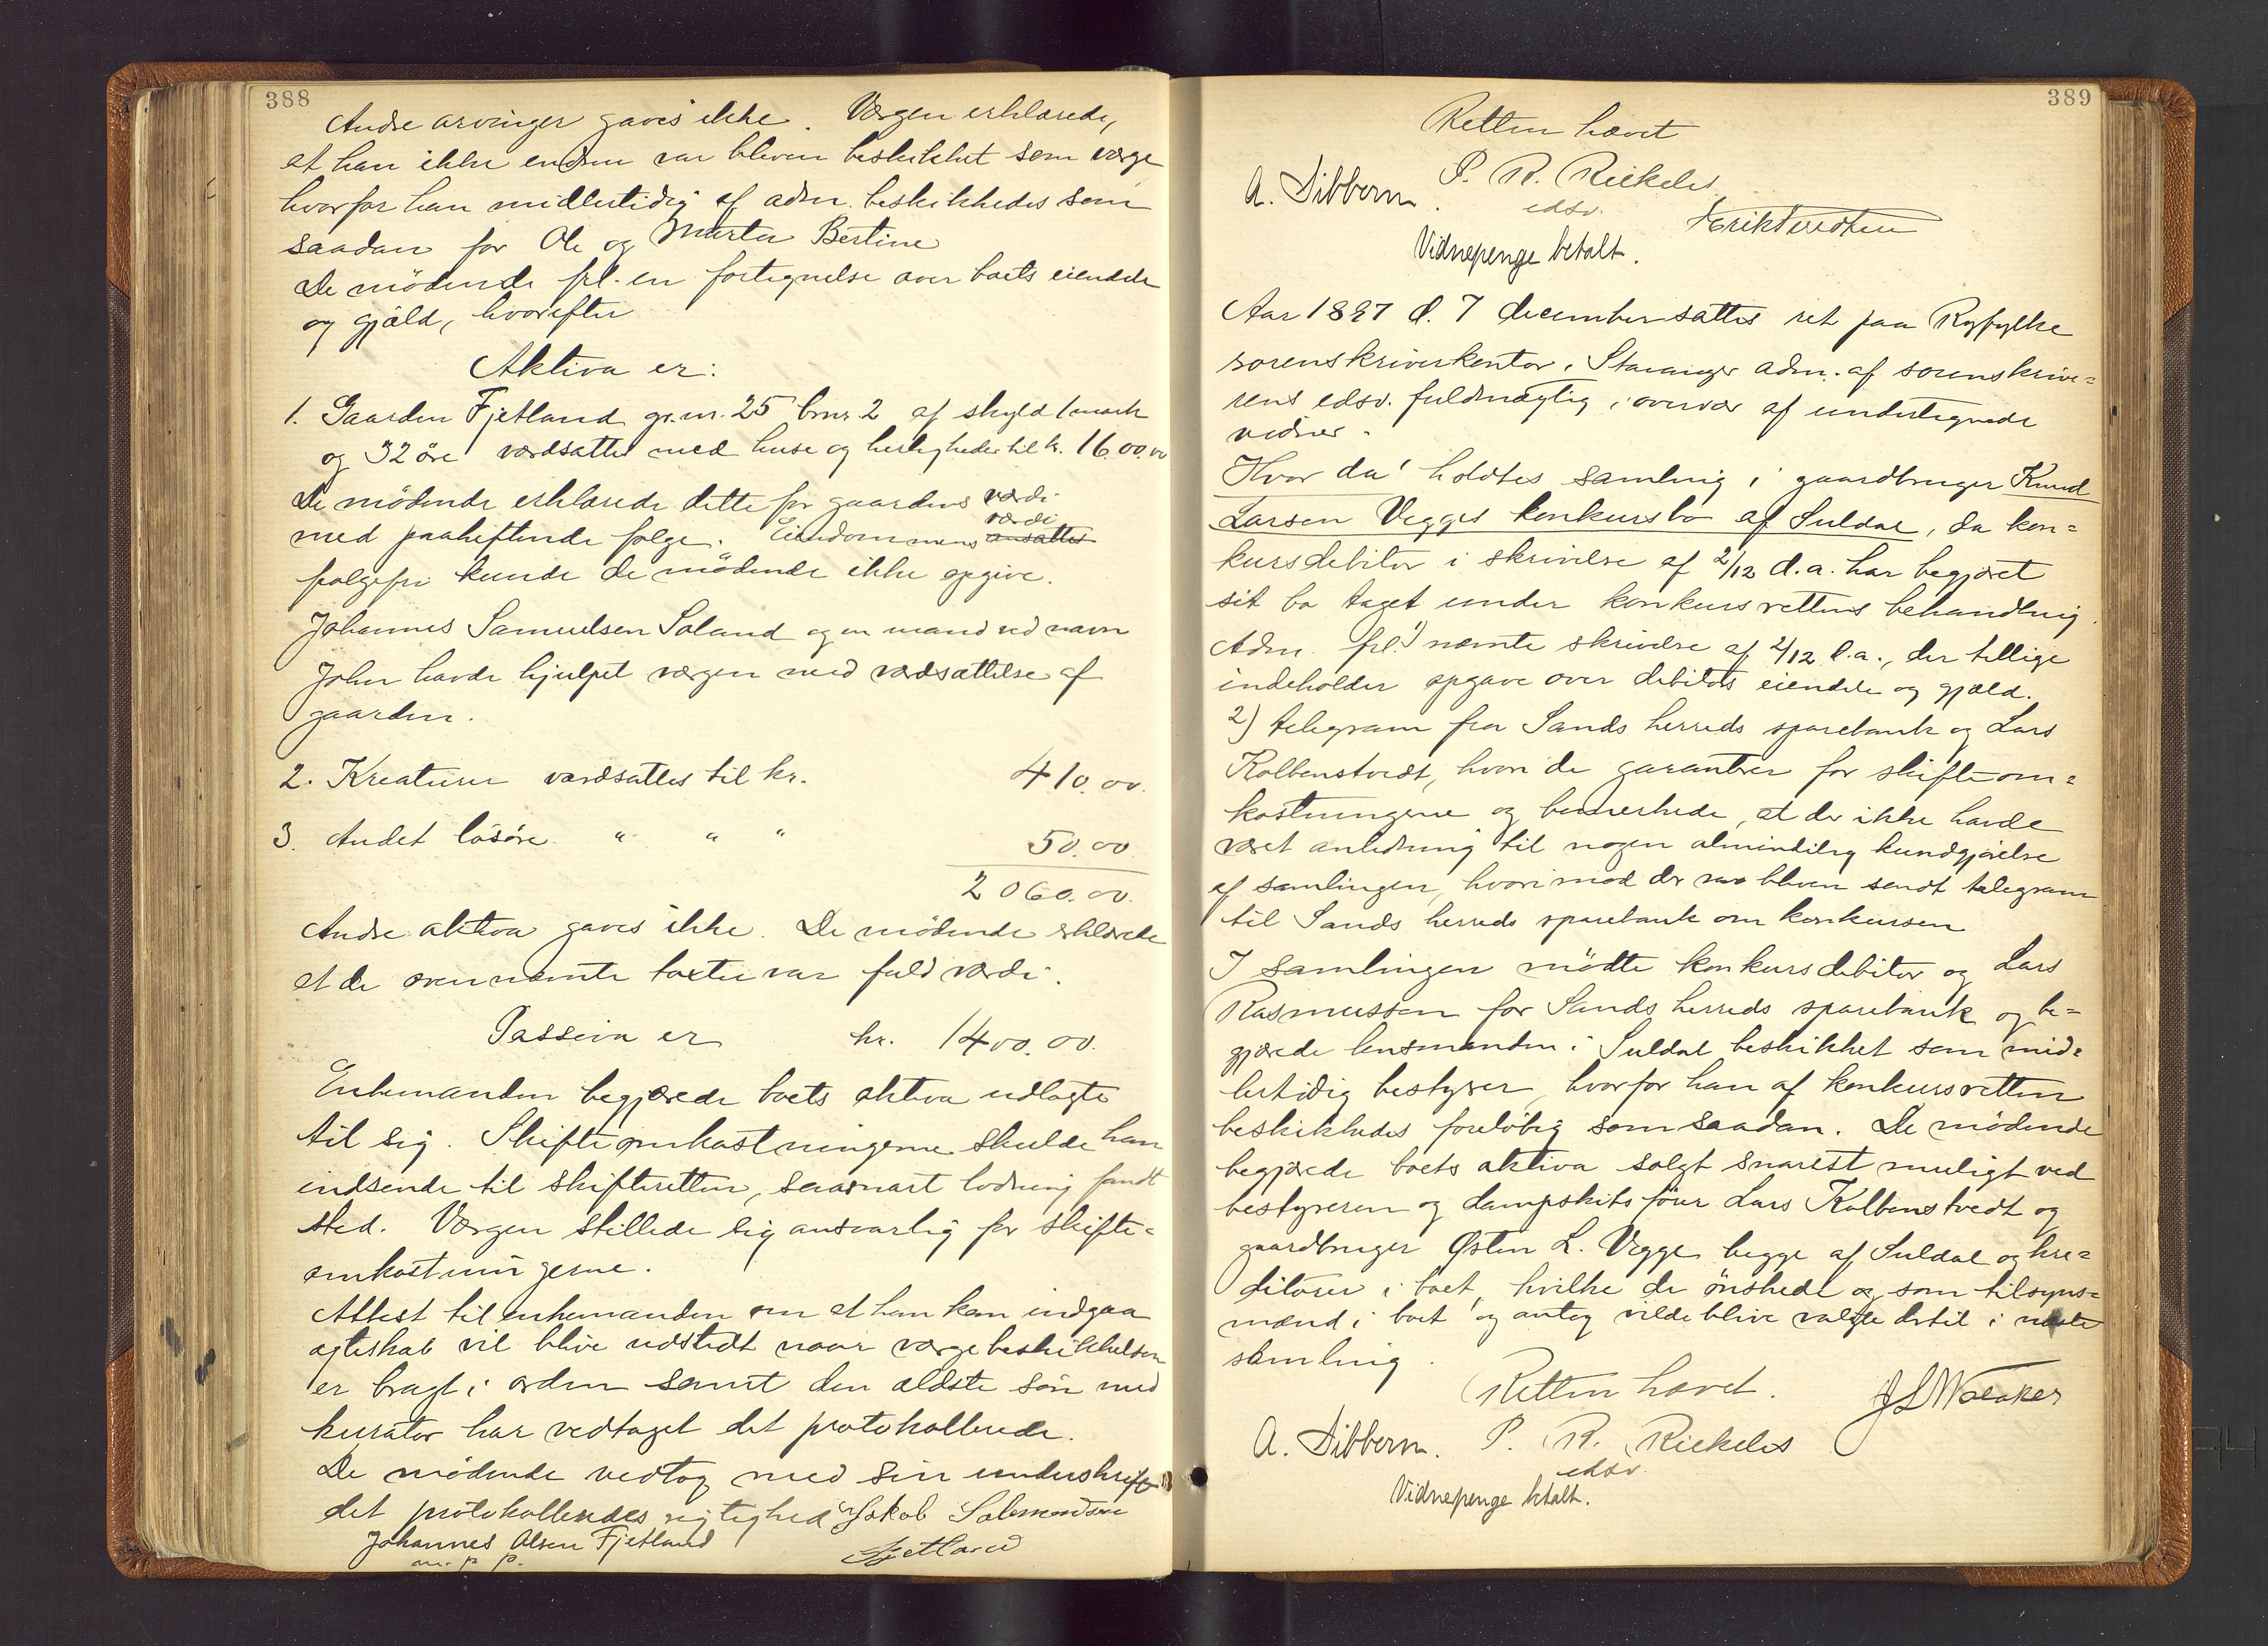 388
Andre arvinger gaves ikke. Værgen erklærede,
at han ikke endnu var bleven beskikket som værge
hvorfor han midlertidig af adm. beskikkedes som
saadan for Ole og Marta Bertine
De mödende frl. en fortegnelse over boets eiendele
og gjæld, hvorefter
Aktiva er:
1. Gaarden Fjetland gr.nr. 25 brnr. 2 af skyld 1 mark
og 32 öre værdsattes med huse og herligheder til kr. 1600.00
De mödende erklærede dette for gaardens værdi
med paaheftende folge. Eiendommens ansattes værdi
folgefri kunde de mödende ikke opgive.
Johannes Samuelsen Soland og en mand ved navn
John havde hjulpet værgen med værdsættelse af
gaarden.
2. Kreaturer værdsattes til kr. 410.00.
3. Andet lösöre " " " 50.00
2060.00.
Andre aktiva gaves ikke. De mödende erklærede
at de ovennævnte taxter var fuld værdi.
Passiva er kr. 1400.00.
Enkemanden begjærede boets aktiva udlagte
til sig. Skifteomkostningerne skulde han
indsende til skifteretten, saasnart lodning fandt
sted. Værgen stillede sig ansvarlig for skifte=
omkostningerne.
Attest til enkemanden om at han kan indgaa
ægteskab vil blive udstedt naar værgebeskikkelsen
er bragt i orden samt den ældste sön med
kurator har vedtaget det protokollerede.
De mödende vedtog med sin underskrift
det protokolleredes rigtighed Jakob Salomonsen
Johannes Olsen Fjetland Fjetland
m. p. p.
389
Retten hævet
A. Dibbern. P. R. Rickeles
edsv.
Vidnepenge betalt.
Aar 1897 d. 7 december sattes ret paa Ryfylke
sorenskriverkontor i Stavanger adm. af sorenskrive=
rens edsv. fuldmægtig i overvær af undertegnede
vidner.
Hvor da holdtes samling i gaardbruger Knud
Larsen Vegges konkursbo af Suldal, da kon=
kursdebitor i skrivelse af 2/12 d.a. har begjæret
sit bo taget under konkursrettens behandling.
Adm. frl. 1) nævnte skrivelse af 2/12 d.a., der tillige
indeholder opgave over debitors eiendele og gjæld.
2) telegram fra Sands herreds sparebank og Lars
Kolbenstvedt, hvori de garanterer for skifteom=
kostningerne og bemerkede, at der ikke havde
været anledning til nogen almindelig kundgjörelse
af samlingen, hvorimod der var bleven sendt telegram
til Sands herreds sparebank om konkursen
I samlingen mödte konkursdebitor og Lars
Rasmussen for Sands herreds sparebank og be=
gjærede lensmanden i Suldal beskikket som mid=
lertidig bestyrer, hvorfor han af konkursretten
beskikkedes foreløbig som saadan. De mödende
begjærede boets aktiva solgt snarest muligt ved
bestyreren og dampskibsförer Lars Kolbenstvedt og
gaardbruger Østen L. Vegge begge af Suldal og kre=
ditorer i boet, hvilke de önskede og som tilsyns=
mænd i boet og antog vilde blive valgte dertil i næste
samling.
Retten hævet.
A. Dibbern. P. R. Rickeles
edsv.
Vidnepenge betalt.